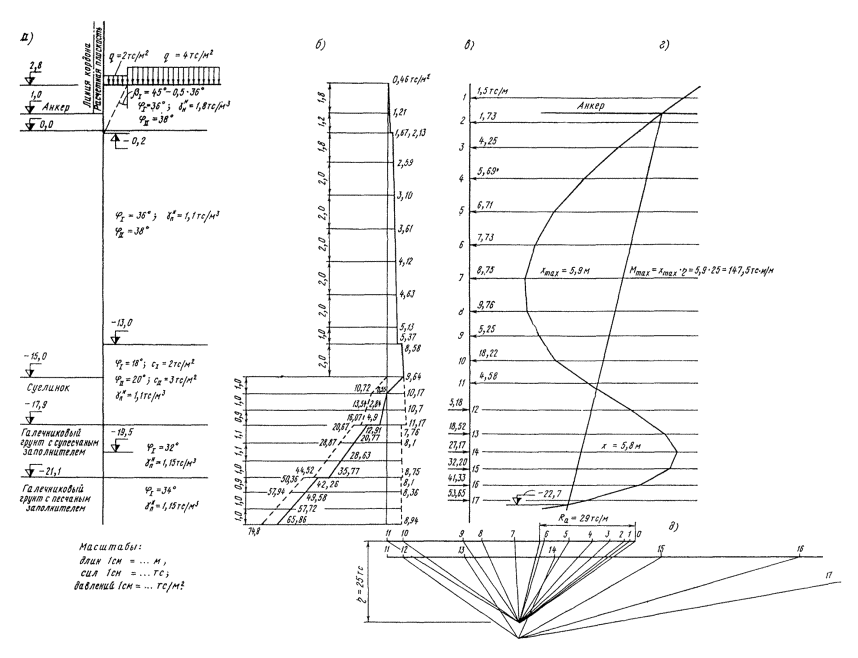 а)
б)
в)
г)
Линия кордона
Расчетная плоскость
q = 2тс/м²
q = 4тс/м²
2,8
β_I = 45° – 0,5·36°
1,0
Анкер
φ_I = 36°; γ_п^н = 1,8тс/м³
φ_II = 38°
0,0
– 0,2
φ_I = 36°; γ_п^н = 1,1тс/м³
φ_II = 38°
–13,0
–15,0
φ_I = 18°; с_I = 2тс/м²
φ_II = 20°; с_II = 3тс/м²
γ_п^н = 1,1тс/м³
Суглинок
–17,9
Галечниковый
грунт с супесчаным
заполнителем
–19,5
φ_I = 32°
γ_п^н = 1,15тс/м³
–21,1
Галечниковый
грунт с песчаным
заполнителем
φ_I = 34°
γ_п^н = 1,15тс/м³
Масштабы:
длин 1см = ... м,
сил 1см = ... тс;
давлений 1см = ... тс/м²
1,8
1,2
1,8
2,0
2,0
2,0
2,0
2,0
2,0
1,0
2,0
1,0
1,0
0,9
1,1
1,1
1,0
0,9
1,0
1,0
0,46 тс/м²
1,21
1,67, 2,13
2,59
3,10
3,61
4,12
4,63
5,13
5,37
8,58
9,64
10,72
10,17
13,54
2,84
10,7
16,07
4,9
11,17
20,67
12,91
7,76
20,77
28,87
8,1
28,63
44,52
35,77
8,75
50,36
42,26
8,1
57,94
49,58
8,36
57,72
74,8
65,86
8,94
1
1,5тс/м
Анкер
2
1,73
3
4,25
4
5,69
5
6,71
6
7,73
7
8,75
x_max = 5,9 м
M_max = x_max · р = 5,9 · 25 = 147,5тс·м/м
8
9,76
9
5,25
10
18,22
11
4,58
5,18
12
18,52
13
27,17
14
x = 5,8 м
32,20
15
41,33
16
53,65
17
–22,7
R_a = 29тс/м
д)
11 10 9 8 7 6 5 4 3 2 1 0
11 12 13 14 15 16
17
р = 25тс